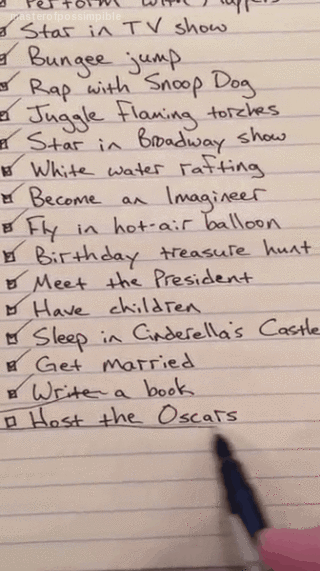 Perform with Muppets
masterofpossimpible
Star in TV show
Bungee jump
Rap with Snoop Dog
Juggle flaming torches
Star in Broadway show
White water rafting
Become an Imagineer
Fly in hot-air balloon
Birthday treasure hunt
Meet the President
Have children
Sleep in Cinderella's Castle
Get married
Write a book
Host the Oscars